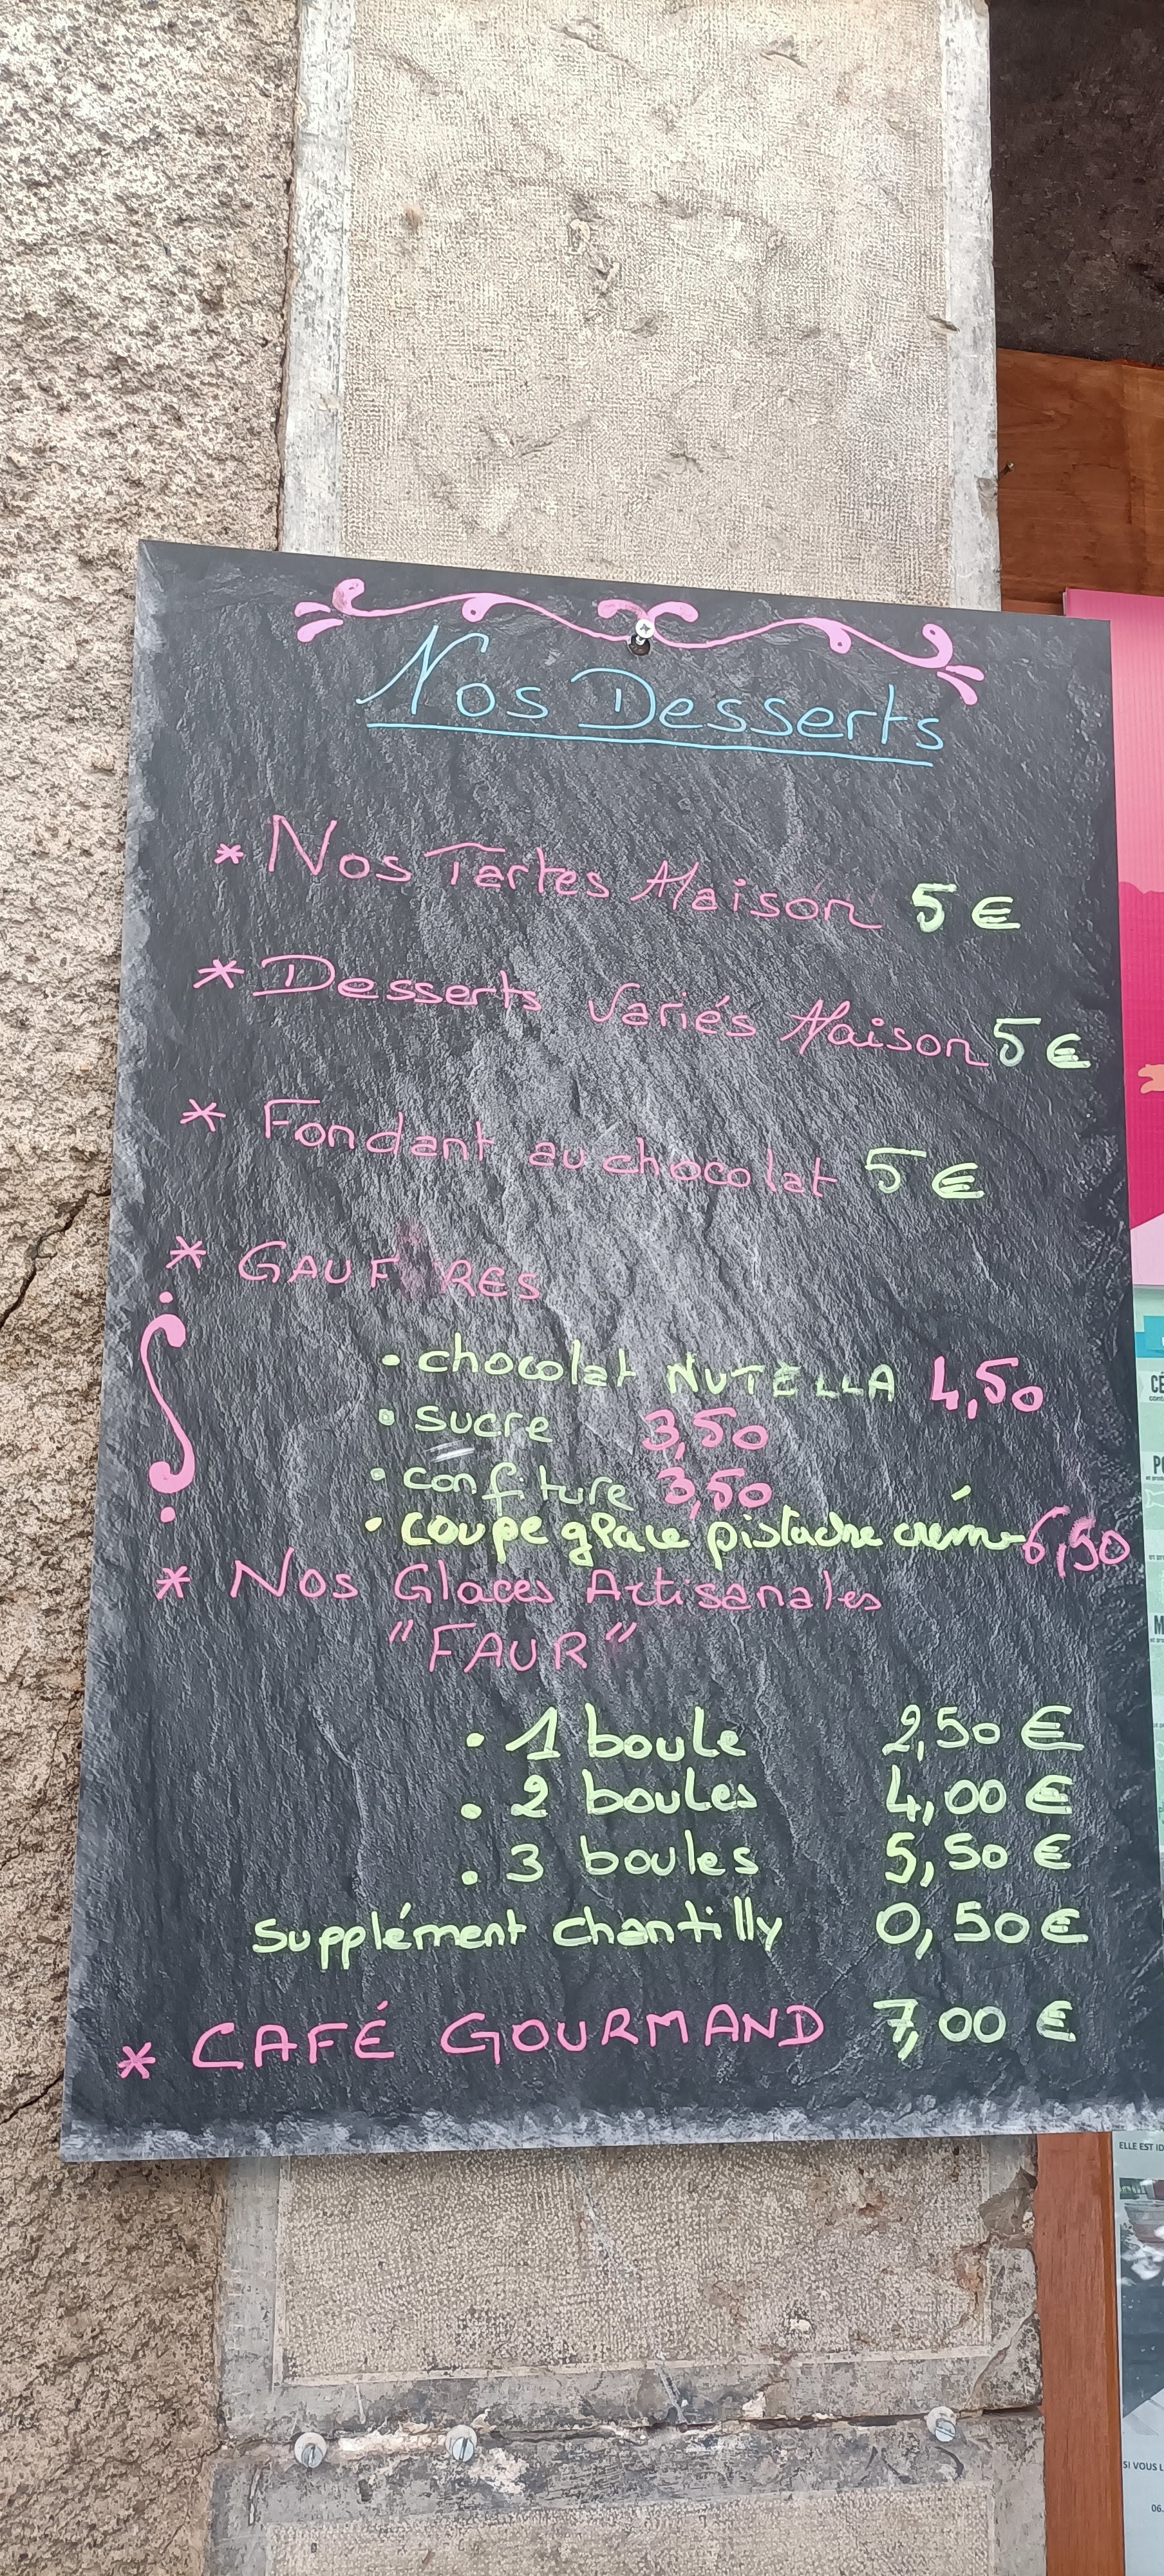 Nos Desserts
* Nos Tartes Maison 5 €
* Desserts Variés Maison 5 €
* Fondant au chocolat 5 €
* GAUFRES
• chocolat NUTELLA 4,50
• sucre 3,50
• confiture 3,50
• coupe glace pistache crém 6,50
* Nos Glaces Artisanales
"FAUR"
• 1 boule 2,50 €
• 2 boules 4,00 €
• 3 boules 5,50 €
Supplément chantilly 0,50 €
* CAFÉ GOURMAND 7,00 €
ELLE EST ID
SI VOUS L
06.